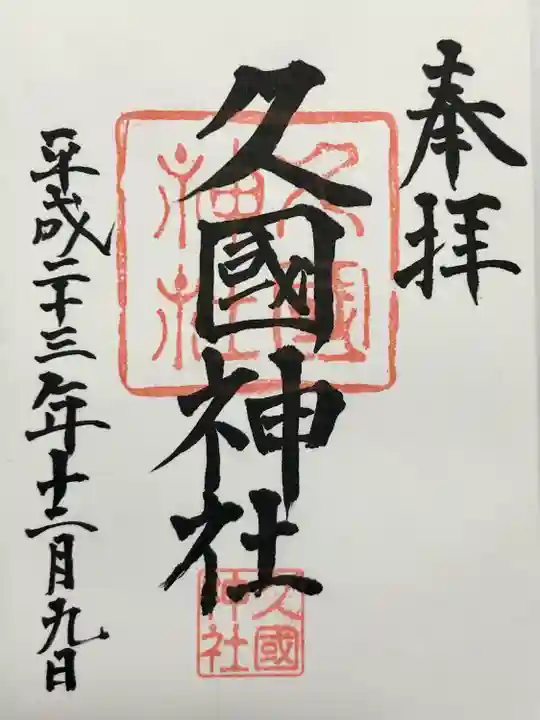 奉拝
久國神社
平成二十三年十二月九日
久國神社
久國神社